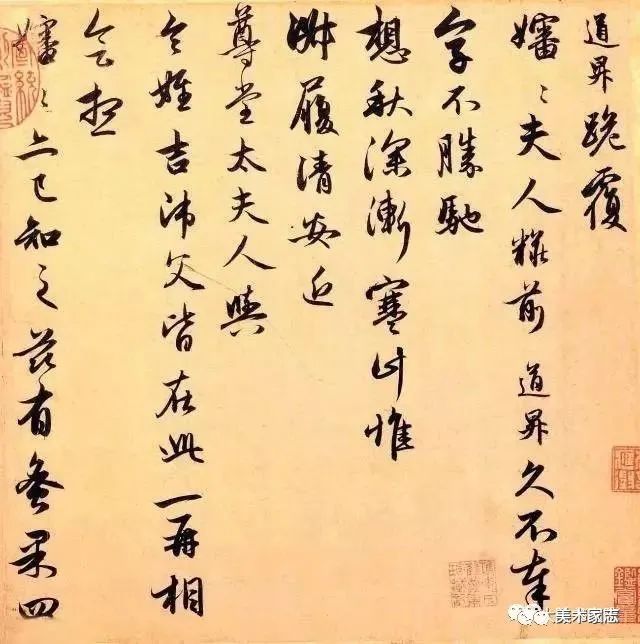 道昇跪覆
嬸〻夫人糚前道昇久不奉
字不勝馳
想秋深漸寒計惟
淑履請安近
尊堂太夫人與
令姪吉師父皆在此一再相
會想
嬸〻亦已知之茲有蚤果四
美术家志